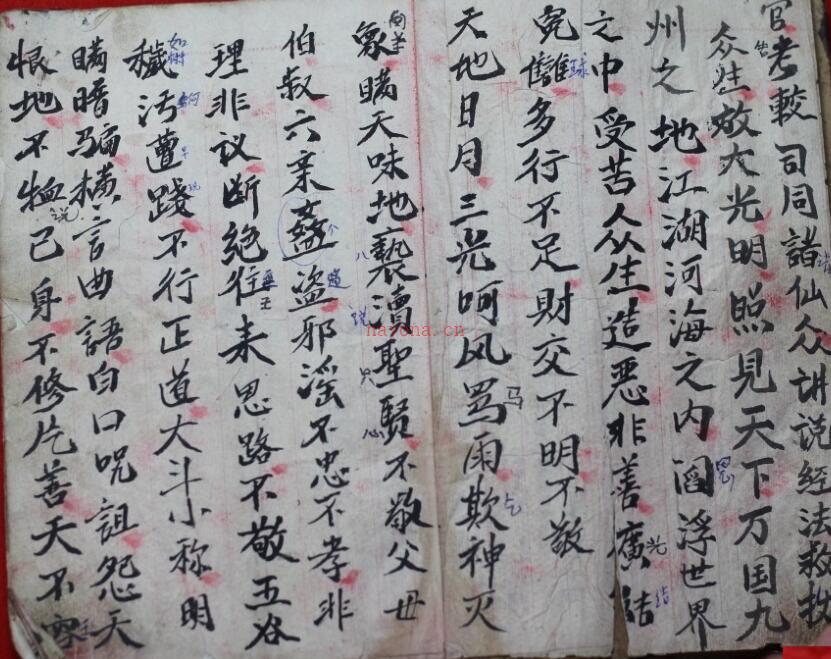 官考較司同諸仙众讲说經法救拔
众生放大光明照見天下万国九
州之地江湖河海之内阎浮世界
之中受苦众生造恶非善廣結
冤雠多行不足財交不明不敬
天地日月三光呵风骂雨欺神灭
象瞒天味地亵瀆聖賢不敬父母
伯叔六亲盗邪滛不忠不孝非
理非议断絕往来思路不敬五谷
穢污遭踐不行正道大斗小称明
瞒暗骗横言曲語白口呪詛怨天
恨地不恤己身不修片善天不容